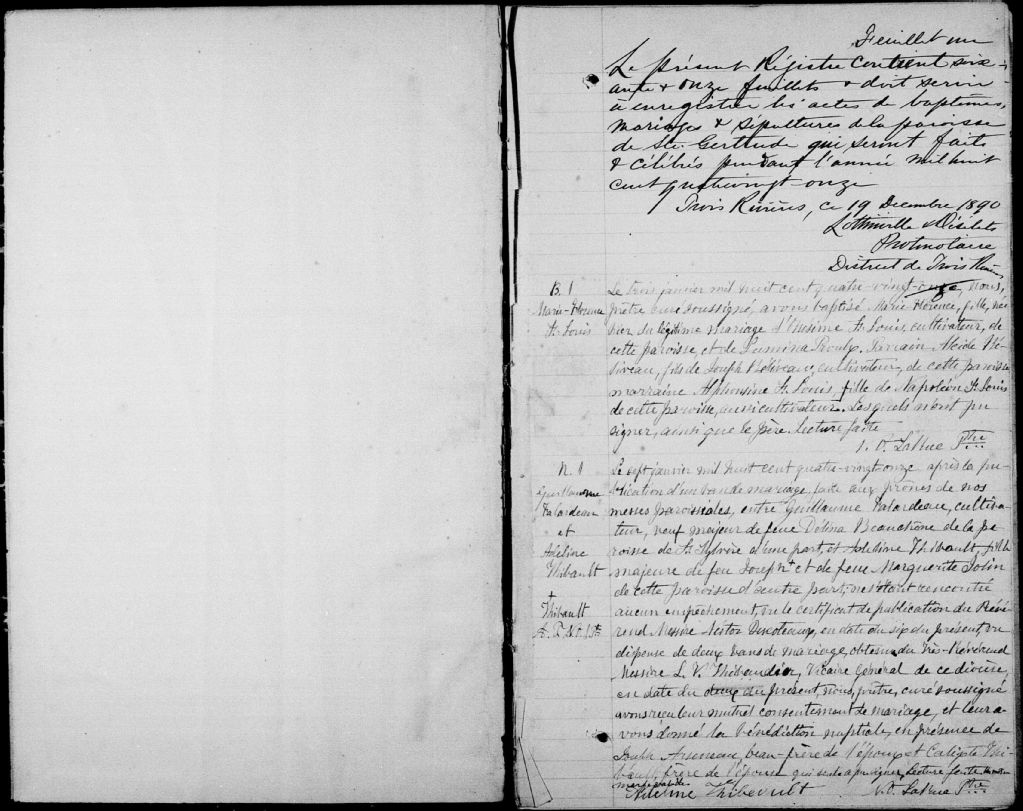 Feuillet un
Le présent Régistre contient soix-
ante & onze feuillets & doit servir
à enregistrer les actes de baptêmes,
mariages & sépultures de la paroisse
de Ste. Gertrude qui seront faits
& célébrés pendant l'année mil huit
cent quatrevingt-onze
Trois Rivières, ce 19 Decembre 1890
Lottinville & Désilets
Protonotaire
District de Trois Rivières
B. 1
Marie-Florence
St. Louis
Le trois janvier mil huit cent quatre-vingt-onze, nous,
prêtre curé soussigné, avons baptisé Marie Florence, fille, née
hier du légitime mariage d'Onésime St. Louis, cultivateur, de
cette paroisse, et de Lumina Proulx. Parrain Alcide Bé-
liveau, fils de Joseph Béliveau, cultivateur, de cette paroisse
marraine Alphonsine St. Louis, fille de Napoléon St. Louis
de cette paroisse, aussi cultivateur. Lesquels n'ont pu
signer, ainsi que le père. Lecture faite
LaRue Ptre
M. 1
Guillaume
et
Adeline
Thibault
+
Thibault
Le sept janvier mil huit cent quatre-vingt onze après la pu-
blication d'un ban de mariage, faite aux prônes de nos
messes paroissiales, entre Guillaume cultiva-
teur, veuf majeur de feue Délina Beauchêne de la pa-
roisse de St. Sylvère d'une part, et Adeline Thibault, fille
majeure de feu Joseph et de feue Marguerite
de cette paroisse d'autre part; ne s'étant rencontré
aucun empêchement, vu le certificat de publication du Révé-
rend Messire Nestor en date du six du présent, vu
dispense de deux bans de mariage, obtenue du Très-Révérend
Messire L. V. Thibaudier, Vicaire Général de ce diocèse,
en date du deux du présent, nous, prêtre, curé soussigné
avons reçu leur mutuel consentement de mariage, et leur a-
vons donné la bénédiction nuptiale, en présence de
Joseph Arseneau, beau-frère de l'époux et Calixte Thi-
bault, frère de l'épouse qui seule a pu signer, Lecture faite
Adeline Thibeault LaRue Ptre